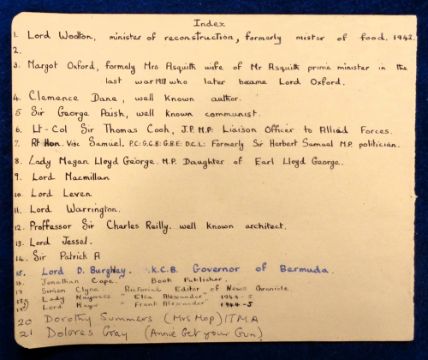 Index
1. Lord Woolton, minister of reconstruction, formerly mistar of food. 1943.
2.
3. Margot Oxford, formely Mrs Asquith wife of Mr Asquith prime minister in the
last war 1918 who later became Lord Oxford.
4. Clemence Dane, well known author.
5 Sir George Paish, well known communist.
6. Lt-Col Sir Thomas Cook, J.P. M.P. Liaison Officer to Allied Forces.
7. Rt Hon. Visc Samuel. P.C: G.C.B: G.B.E: D.C.L: Formerly Sir Herbert Samuel M.P. politician.
8. Lady Megan Lloyd George. M.P. Daughter of Earl Lloyd George.
9. Lord Macmillan
10. Lord Leven
11. Lord Warrington.
12. Proffessor Sir Charles Reilly. well known architect.
13. Lord Jessel.
14. Sir Patrick A
15. Lord D. Burghley. K.C.B. Governor of Bermuda.
16. Jonathan Cape. Book Publisher.
17. Simon Clyne. Pictorial Editor of News Cronicle.
18. Lady " Ella Alexander" 1944
19. Lord " Frank Alexander" 1944-5
20 Dorothy Summers (Mrs Mop) ITMA
21 Dolores Gray (Annie Get your Gun)